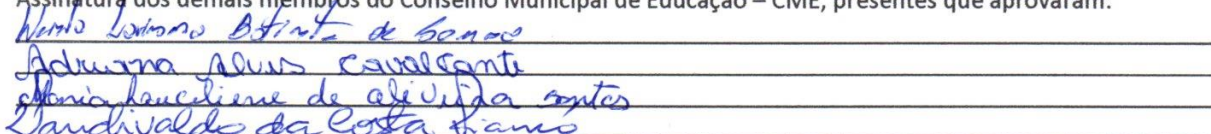 Assinatura dos demais membros do Conselho Municipal de Educação – CME, presentes que aprovaram:
Batista de
Adriana Alves Cavalcante
Maria Lauciliene de Oliveira Santos
Vandivaldo da Costa